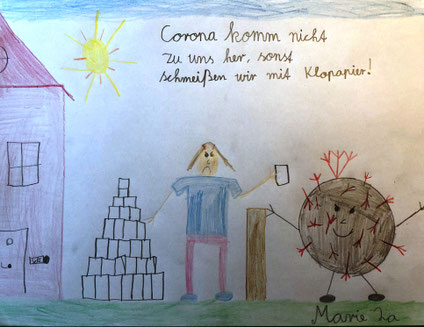 Corona komm nicht
zu uns her, sonst
schmeißen wir mit Klopapier!
Marie 2a